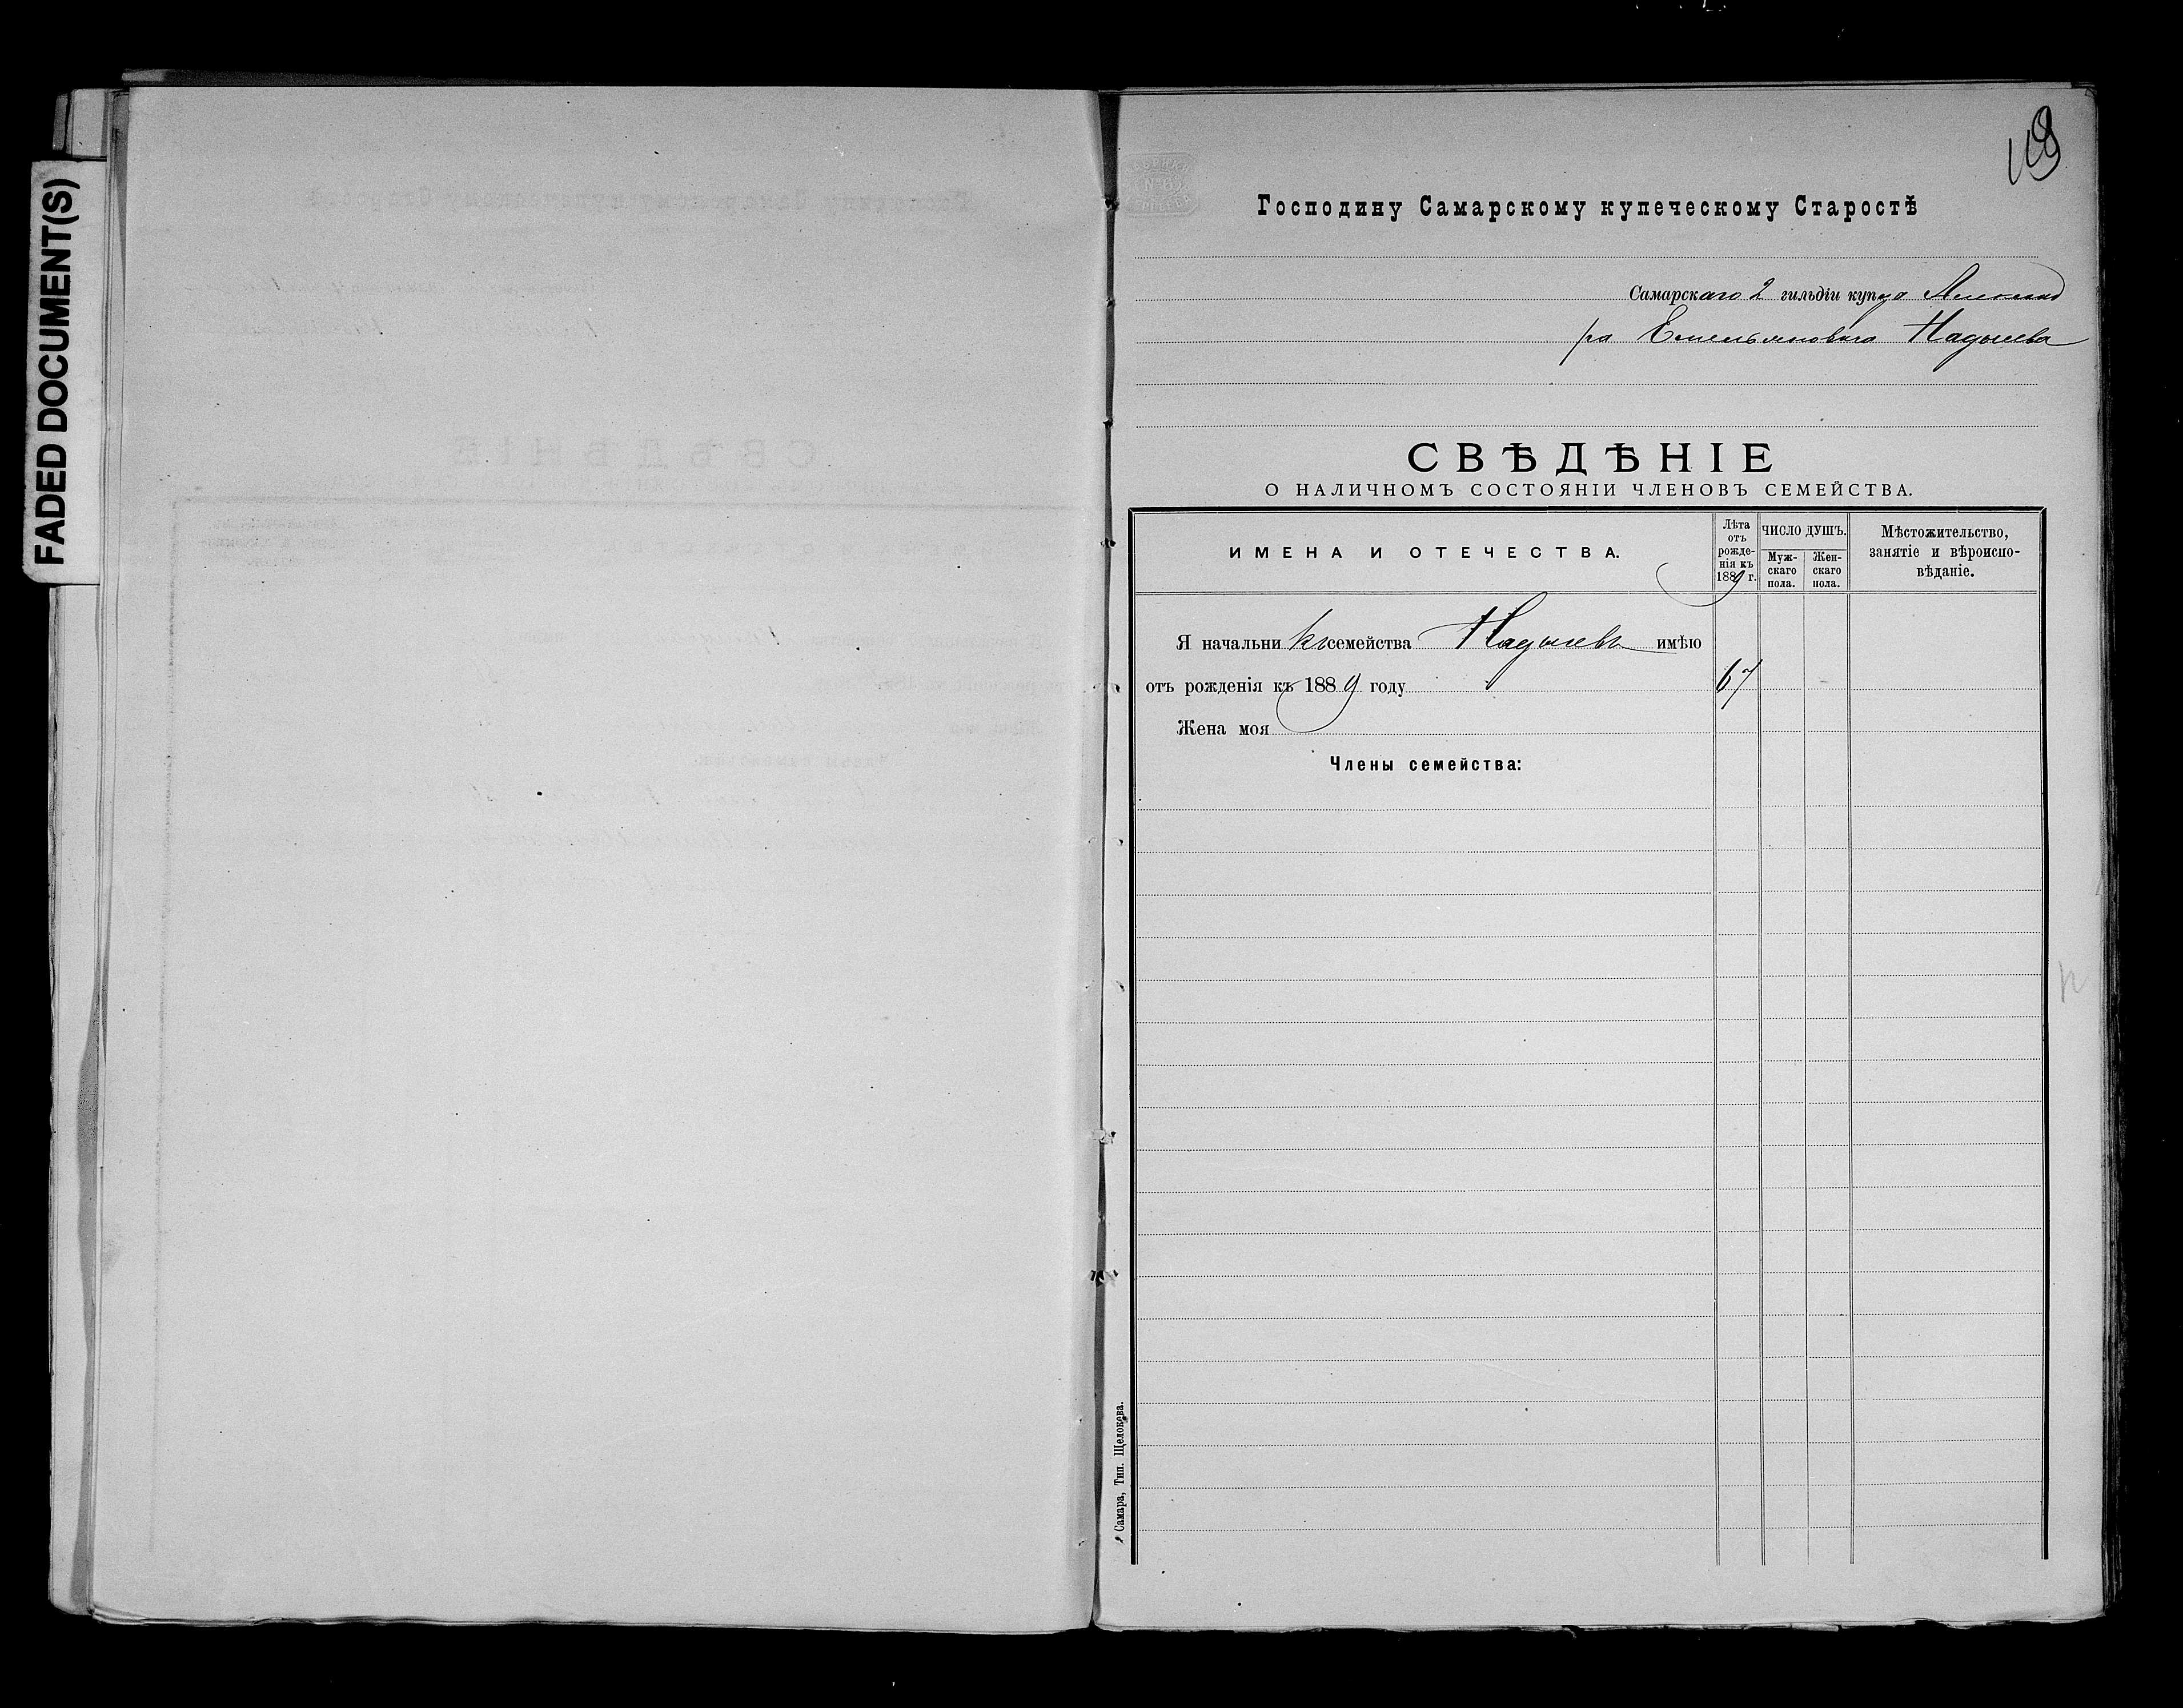 FADED DOCUMENT(S)
Господину Самарскому купеческому Старостѣ
Самарскаго 2 гильдіи купца Александ
ра Емельяновича Надысева
СВѢДѢНІЕ
О НАЛИЧНОМЪ СОСТОЯНІИ ЧЛЕНОВЪ СЕМЕЙСТВА.
ИМЕНА И ОТЕЧЕСТВА.
Лѣта отъ рожде- нія къ 1889 г.
ЧИСЛО ДУШЪ.
Муж- скаго пола.
Жен- скаго пола.
Мѣстожительство,
занятіе и вѣроиспо-
вѣданіе.
Я начальникъ семейства Надысевъ имѣю
отъ рожденія къ 1889 году 67
Жена моя
Члены семейства:
Самара, Тип. Щелокева.